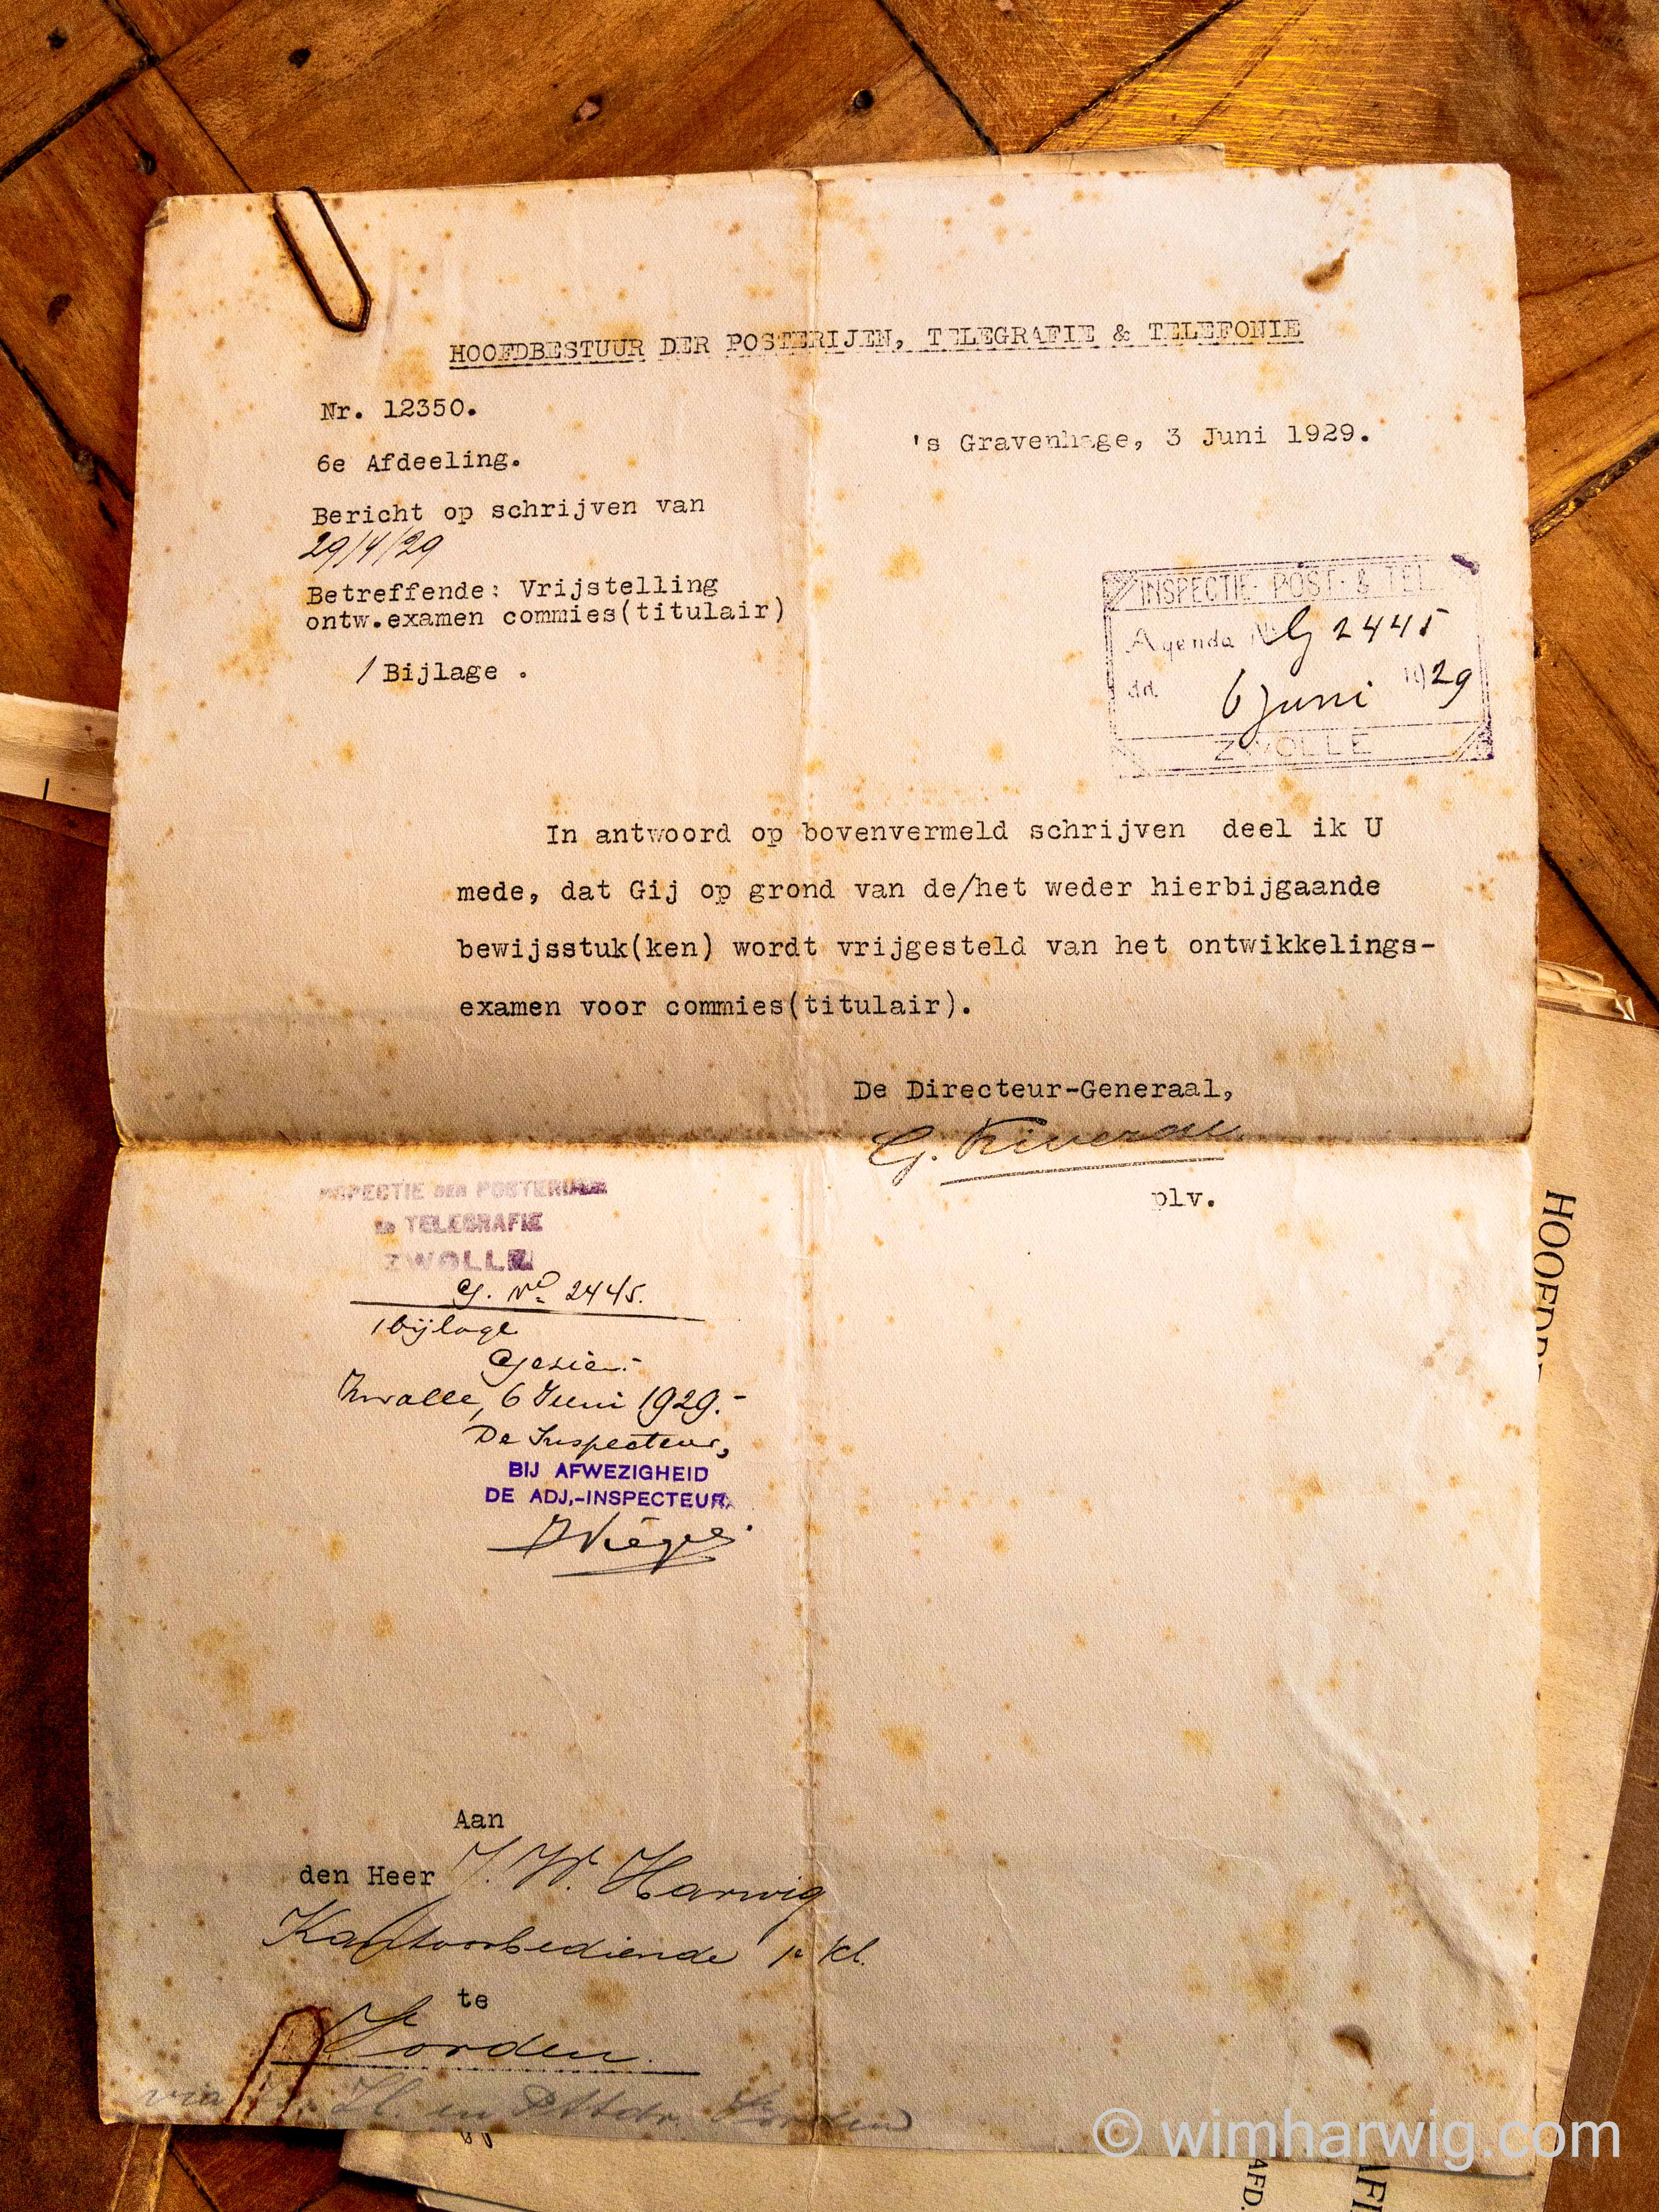 HOOFDBESTUUR DER POSTERIJEN, TELEGRAFIE & TELEFONIE
Nr. 12350.
's Gravenhage, 3 Juni 1929.
6e Afdeeling.
Bericht op schrijven van
29/4/29
Betreffende: Vrijstelling
ontw.examen commies(titulair)
1 Bijlage .
INSPECTIE POST- & TEL.
Agenda No G 2445
dd. 6 Juni 1929
ZWOLLE
In antwoord op bovenvermeld schrijven deel ik U
mede, dat Gij op grond van de/het weder hierbijgaande
bewijsstuk(ken) wordt vrijgesteld van het ontwikkelings-
examen voor commies(titulair).
De Directeur-Generaal,
plv.
INSPECTIE DER POSTERIJEN
EN TELEGRAFIE
ZWOLLE
G. No 2445.
1 bijlage
Gezien.-
Zwolle, 6 Juni 1929.-
De Inspecteur,
BIJ AFWEZIGHEID
DE ADJ,-INSPECTEUR
Aan
den Heer J. W. Harwig
Kantoorbediende 1e kl.
te
Vorden.
via en Vorden
HOOFDB
AFD.
© wimharwig.com